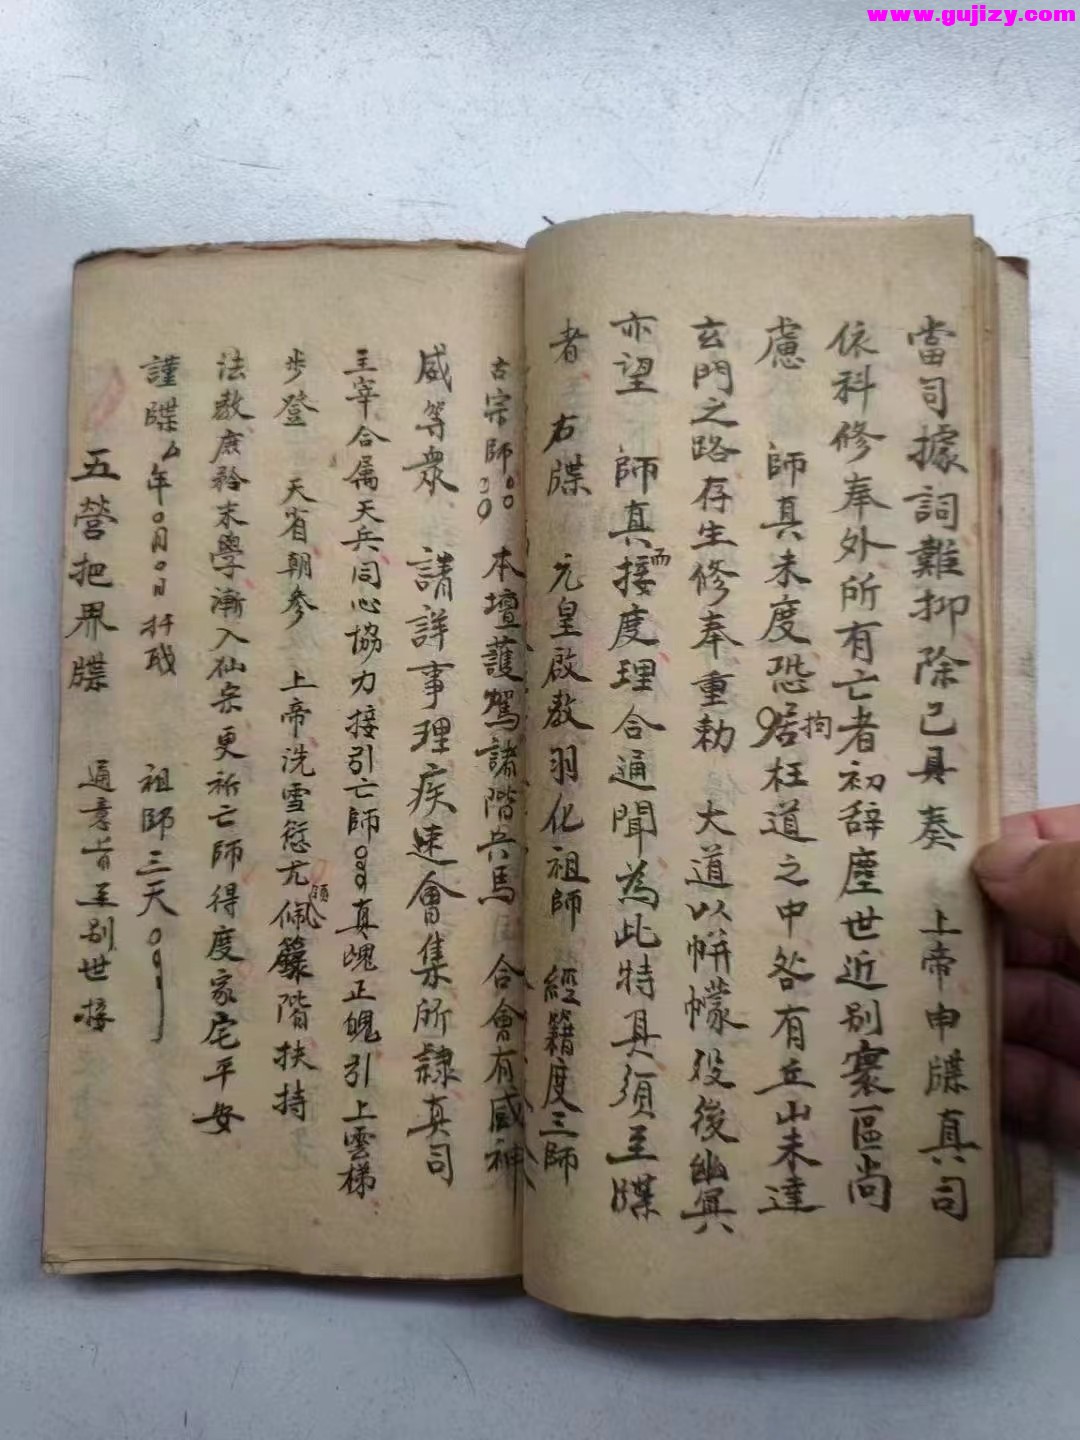 www.gujizy.com
當司據詞難抑除已具奏 上帝申牒真司
依科修奉外所有亡者初辞塵世近别寰區尚
慮 師真未度恐居拘枉道之中各有丘山未達
玄門之路存生修奉重勅 大道以帡幪没後幽冥
亦望 師真接而度理合通聞為此特具須至牒
者 右牒 元皇啟教羽化祖師 經籍度三師
古宗師 本壇護駕諸階兵馬 合會有感神
咸等眾 請詳事理疾速會集所隷真司
主宰合属天兵同心協力接引亡師 真魂正魄引上雲梯
步登 天省朝参 上帝洗雪愆尤佩籙階扶持
法教庶矜末學漸入仙宗更祈亡師得度家宅平安
謹牒 年 月 日 祖師三天
五營把界牒 通意旨至别世接